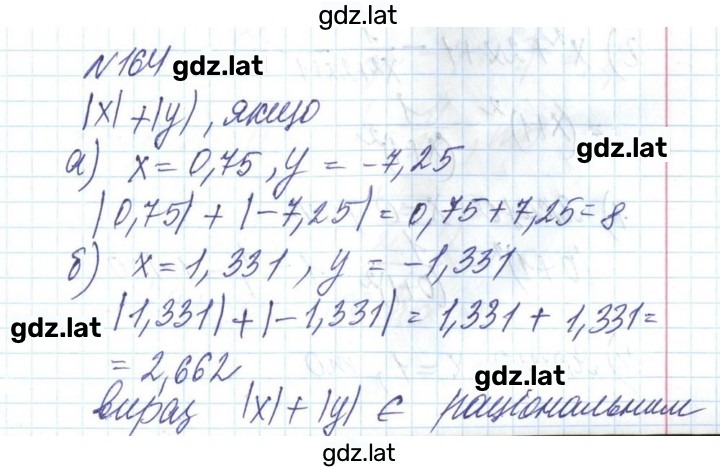 gdz.lat
№164 gdz.lat
|x| + |y|, якщо
а) x = 0,75, y = -7,25 gdz.lat
|0,75| + |-7,25| = 0,75 + 7,25 = 8.
б) x = 1,331, y = -1,331
gdz.lat |1,331| + |-1,331| = 1,331 + 1,331 =
= 2,662 gdz.lat
вираз |x| + |y| є раціональним
gdz.lat